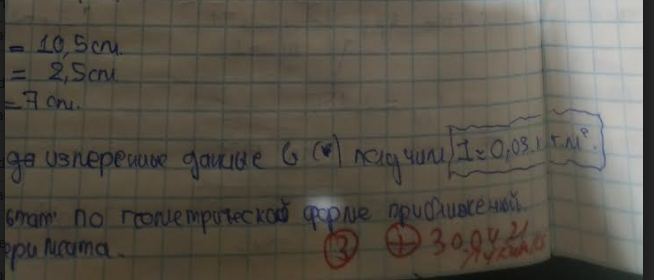 = 10,5 см.
= 2,5 см
= 7 см.
измеренные данные в (*) получим I = 0,03 кг м².
по геометрической форме приближенный
3 + 30.04.21